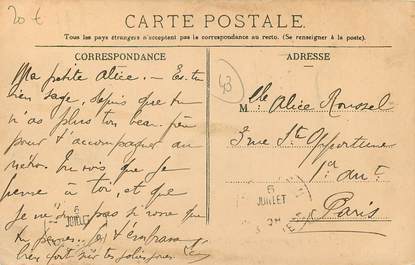 20 €
CARTE POSTALE.
Tous les pays étrangers n'acceptent pas la correspondance au recto. (Se renseigner à la poste).
CORRESPONDANCE
ADRESSE
43
Ma petite Alice. – Es-tu
bien sage, depuis que tu
n'as plus ton beau
pour t'accompagner au
métro. Tu vois que je
pense à toi, et que
je ne suis pas si rosse que
tu
bien fort sur tes jolies joues.
Mlle Alice Roussel
3 rue Ste Opportune
1r du Ct
Paris
6
JUILLET
6
JUILLET